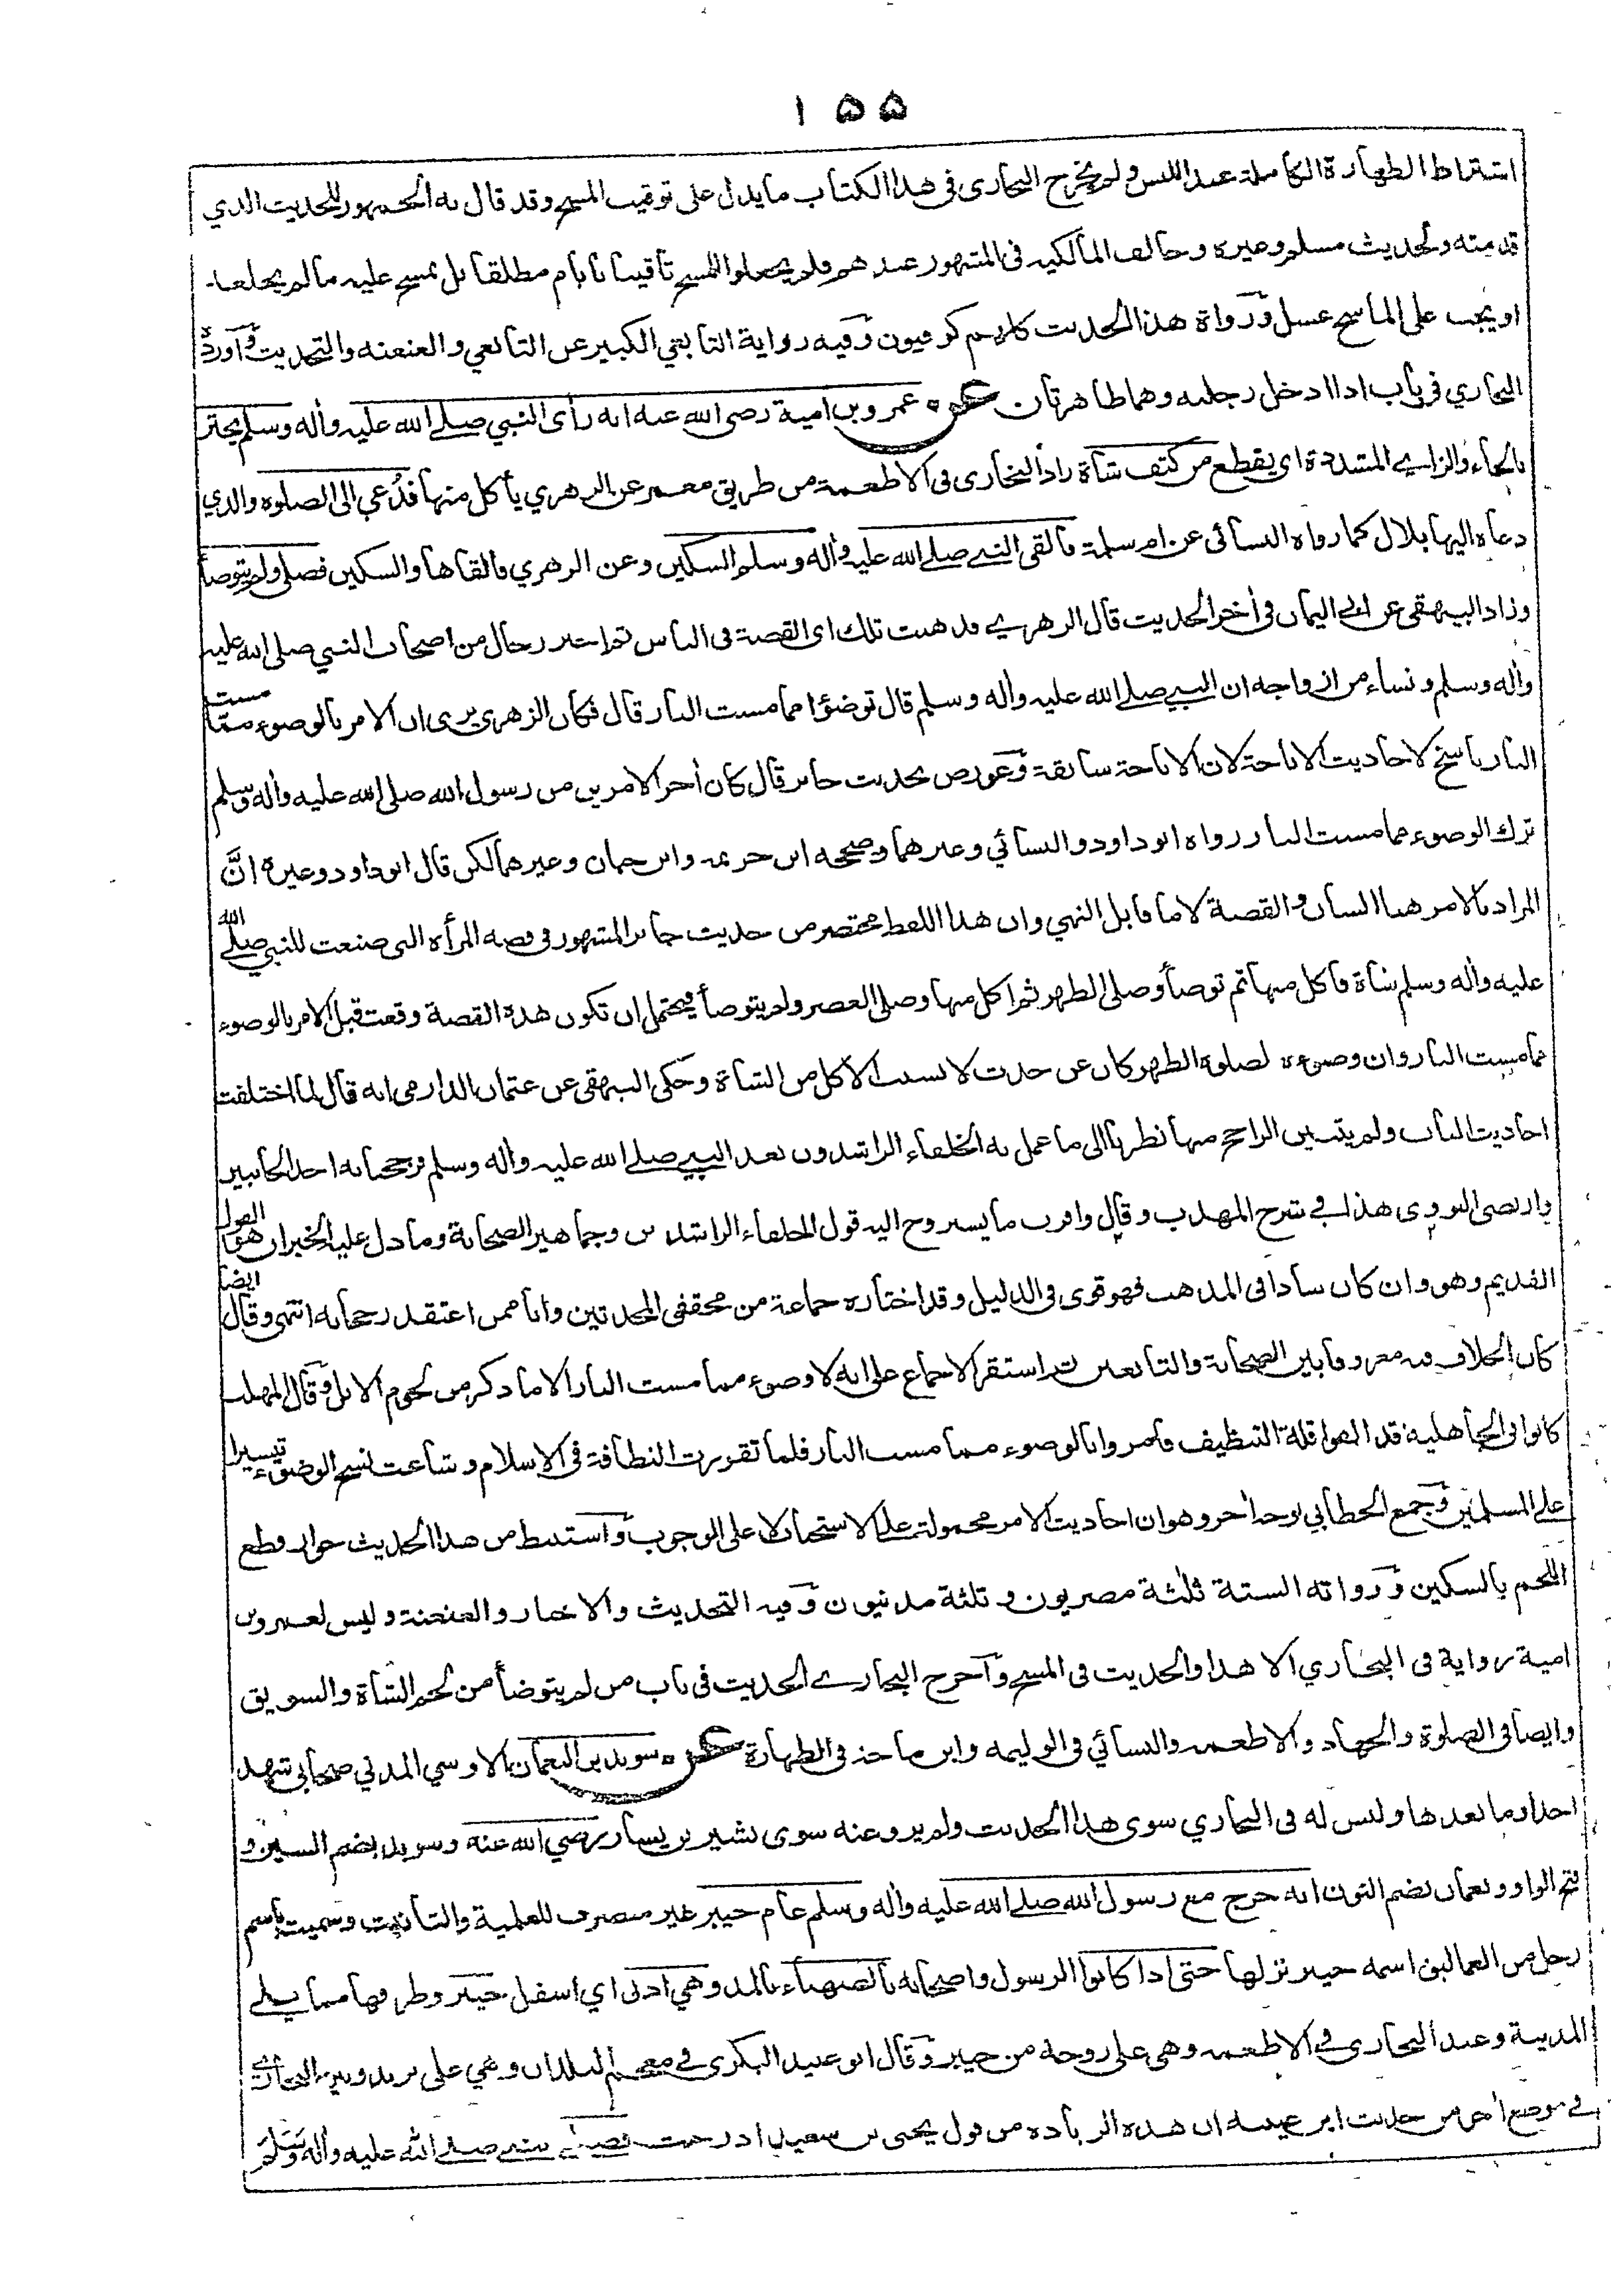 ١٥٥
اشتراط الطهارة الكاملة عند اللبس ولم يخرج البخارى فى هذا الكتاب مايدل على توقيت المسح وقد قال به الجمهور للحديث الذي
قدمته ولحديث مسلم وغيره وخالف المالكيه فى المشهور عندهم فلم يجعلوا للمسح تأقيتا بأيام مطلقا بل يمسح عليه مالم يخلعه
او يجب على الماسح غسل ورواة هذا الحديث كلهم كوفيون وفيه رواية التابعي الكبير عن التابعي والعنعنه والتحديث وأورده
البخاري فى باب اذا ادخل رجليه وهما طاهرتان عن عمرو بن امية رضى الله عنه انه رأى النبي صلے الله عليه وأله وسلم يحتز
بالحاء والزاى المشددة اى يقطع من كتف شاة زاد البخارى فى الاطعمة من طريق معمر عن الزهري يأكل منها فدُعي الى الصلوه والذي
دعاه اليها بلال كما رواه النسائى عن ام سلمة فالقى النبي صلے الله عليه وأله وسلم السكين وعن الزهري فالقاها والسكين فصلى ولم يتوضأ
وزاد البيهقى عن ابى اليمان فى أخر الحديث قال الزهري فذهبت تلك اى القصة فى الناس ثم اخبر رجال من اصحاب النبي صلى الله عليه
وأله وسلم ونساء من ازواجه ان النبي صلے الله عليه وأله وسلم قال توضؤا مما مست النار قال فكان الزهرى يرى ان الامر بالوضوء مما مست
النار ناسخ لاحاديث الاباحة لان الاباحة سابقة وعورض بحديث جابر قال كان أخر الامرين من رسول الله صلى الله عليه وأله وسلم
ترك الوضوء مما مست النار رواه ابو داود والنسائي وغيرهما وصححه ابن خزيمه وابن حبان وغيرهما لكن قال ابو داود وغيره انَّ
المراد بالامر هنا الشان والقصة لا ما قابل النهي وان هذا اللفظ مختصر من حديث جابر المشهور فى قصه المرأه التى صنعت للنبي صلے الله
عليه وأله وسلم شاة فاكل منها ثم توضأ وصلى الظهر ثم اكل منها وصلى العصر ولم يتوضأ فيحتمل ان تكون هذه القصة وقعت قبل الامر بالوضوء
مما مست النار وان وضوءه لصلوة الظهر كان عن حدث لا بسبب الاكل من الشاة وحكى البيهقى عن عثمان الدارمى انه قال لما اختلفت
احاديث الباب ولم يتبين الراجح منها نظرنا الى ما عمل به الخلفاء الراشدون بعد النبي صلے الله عليه وأله وسلم فرجحنا به احد الجانبين
وارتضى النووى هذا في شرح المهذب وقال واقرب ما يستروح اليه قول الخلفاء الراشدين وجماهير الصحابة وما دل عليه الخبران هو القول
القديم وهو وان كان شاذا فى المذهب فهو قوى فى الدليل وقد اختاره جماعة من محققى المحدثين وانا ممن اعتقد رجحانه انتهى وقال ايضا
كان الخلاف فيه معروفا بين الصحابة والتابعين ثم استقر الاجماع على انه لا وضوء مما مست النار الا ما ذكر من لحوم الابل وقال المهلب
كانوا فى الجاهلية قد الفوا قلة التنظيف فأمروا بالوضوء مما مست النار فلما تقررت النظافة فى الاسلام وشاعت نسخ الوضوء تيسيرا
على المسلمين وجمع الخطابي بوجه أخر وهو ان احاديث الامر محمولة على الاستحباب لا على الوجوب واستنبط من هذا الحديث جواز قطع
اللحم بالسكين ورواته الستة ثلثة مصريون وثلثة مدنيون وفيه التحديث والاخبار والعنعنة وليس لعمرو بن
امية رواية فى البخاري الا هذا والحديث فى المسح وأخرج البخاري الحديث فى باب من لم يتوضأ من لحم الشاة والسويق
وايضا فى الصلوة والجهاد والاطعمه والنسائي فى الوليمه وابن ماجه فى الطهارة عن سويد بن النعمان الاوسي المدني صحابي شهد
احدا وما بعدها وليس له فى البخاري سوى هذا الحديث ولم يرو عنه سوى بشير بن يسار رضي الله عنه وسويد بضم السين و
فتح الواو ونعمان بضم النون انه خرج مع رسول الله صلے الله عليه وأله وسلم عام خيبر غير منصرف للعلمية والتأنيث وسميت باسم
رجل من العماليق اسمه خيبر نزلها حتى اذا كانوا الرسول واصحابه بالصهباء بالمد وهي ادنى اي اسفل خيبر وطرفها مما يلے
المدينة وعند البخارى في الاطعمه وهى على روحة من خيبر وقال ابو عبيد البكرى في معجم البلدان وهي على بريد وبين البخارى
في موضع أخر من حديث ابن عيينه ان هذه الزياده من قول يحيى بن سعيد ادرجت فصلى النبي صلے الله عليه وأله وسلم